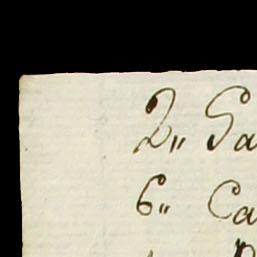 2„ Sa
6„ Ca